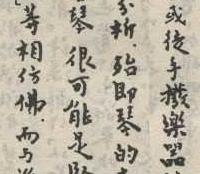 或徒手撥樂器
分析，殆即琴的
琴 很可能是
等相彷彿，而与